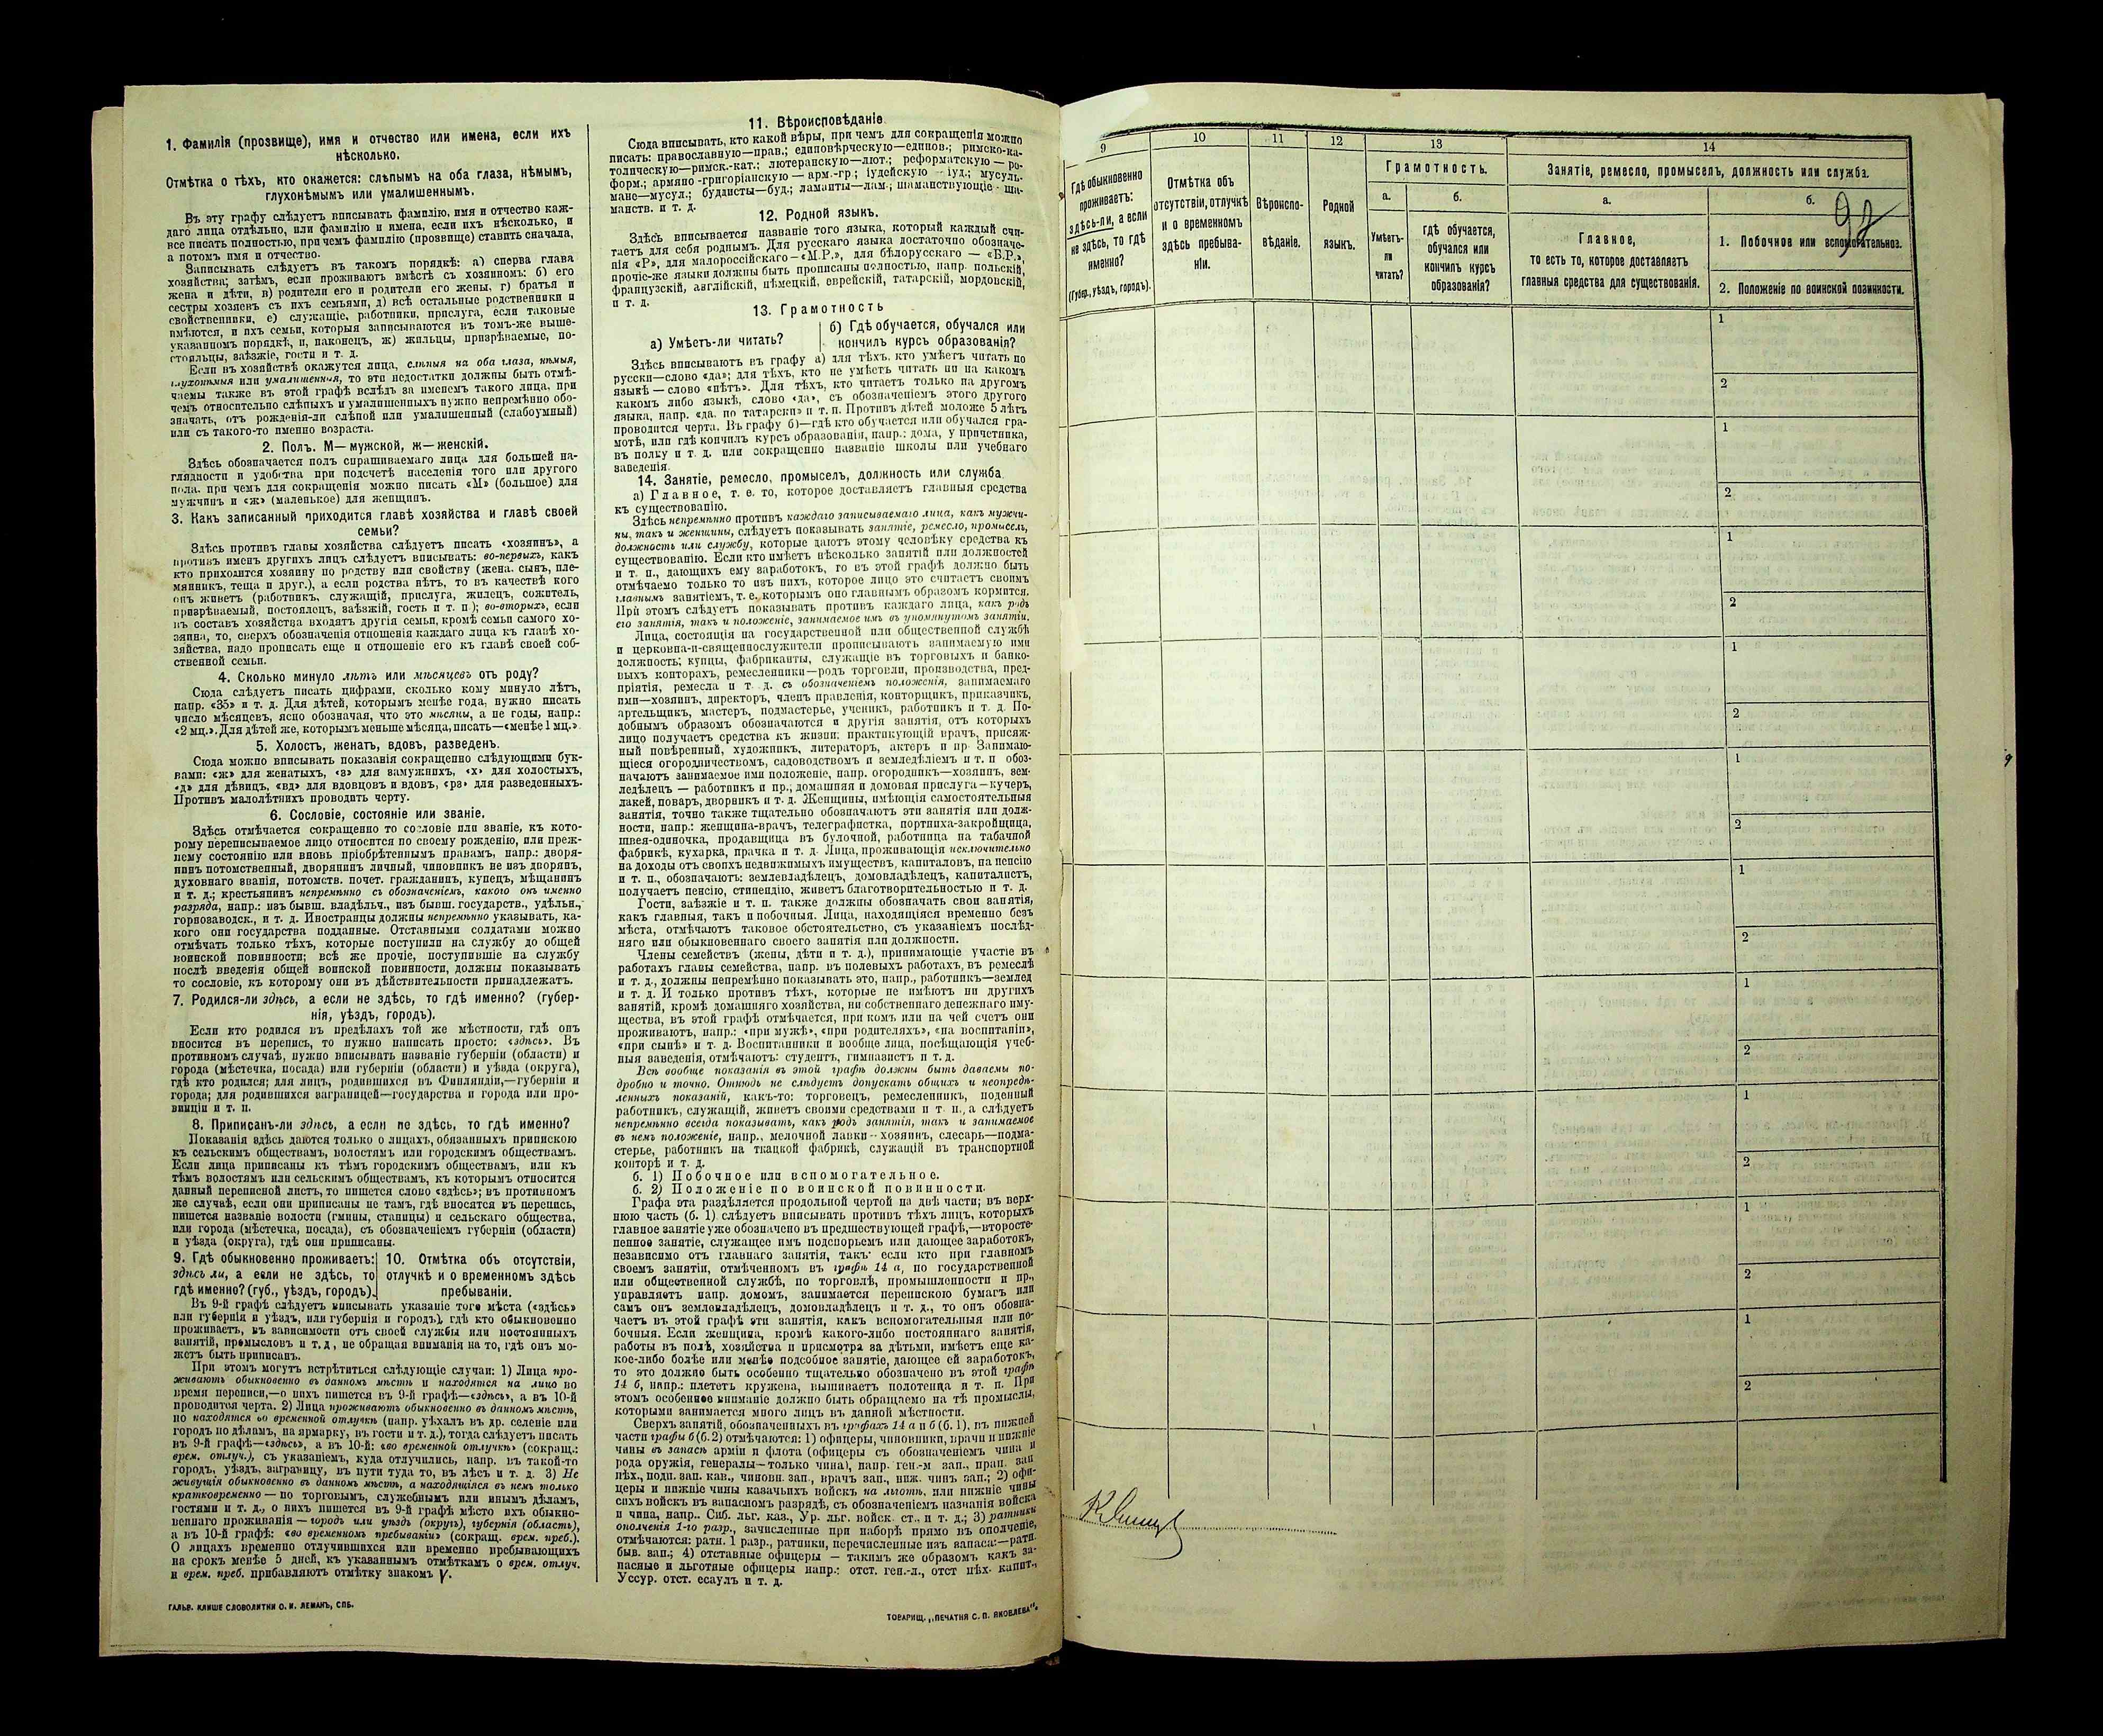 1. Фамилія (прозвище), имя и отчество или имена, если ихъ
нѣсколько.
Отмѣтка о тѣхъ, кто окажется: слѣпымъ на оба глаза, нѣмымъ,
глухонѣмымъ или умалишеннымъ.
Въ эту графу слѣдуетъ вписывать фамилію, имя и отчество каж-
даго лица отдѣльно, или фамилію и имена, если ихъ нѣсколько, и
все писать полностью, при чемъ фамилію (прозвище) ставить сначала,
а потомъ имя и отчество.
Записывать слѣдуетъ въ такомъ порядкѣ: а) сперва глава
хозяйства; затѣмъ, если проживаютъ вмѣстѣ съ хозяиномъ: б) его
жена и дѣти, в) родители его и родители его жены, г) братья и
сестры хозяевъ съ ихъ семьями, д) всѣ остальные родственники и
свойственники, е) служащіе, работники, прислуга, если таковые
имѣются, и ихъ семьи, которыя записываются въ томъ-же выше-
указанномъ порядкѣ, и, наконецъ, ж) жильцы, призрѣваемые, по-
стояльцы, заѣзжіе, гости и т. д.
Если въ хозяйствѣ окажутся лица, слѣпыя на оба глаза, нѣмыя,
глухонѣмыя или умалишенныя, то эти недостатки должны быть отмѣ-
чаемы также въ этой графѣ вслѣдъ за именемъ такого лица, при
чемъ относительно слѣпыхъ и умалишенныхъ нужно непремѣнно обо-
значать, отъ рожденія-ли слѣпой или умалишенный (слабоумный)
или съ такого-то именно возраста.
2. Полъ. М— мужской, ж— женскій.
Здѣсь обозначается полъ спрашиваемаго лица для большей на-
глядности и удобства при подсчетѣ населенія того или другого
пола. при чемъ для сокращенія можно писать «М» (большое) для
мужчинъ и «ж» (маленькое) для женщинъ.
3. Какъ записанный приходится главѣ хозяйства и главѣ своей
семьи?
Здѣсь противъ главы хозяйства слѣдуетъ писать «хозяинъ», а
противъ именъ другихъ лицъ слѣдуетъ вписывать: во-первыхъ, какъ
кто приходится хозяину по родству или свойству (жена. сынъ, пле-
мянникъ, теща и друг.), а если родства нѣтъ, то въ качествѣ кого
онъ живетъ (работникъ, служащій, прислуга, жилецъ, сожитель,
призрѣваемый, постоялецъ, заѣзжій, гость и т. п ); во-вторыхъ, если
въ составъ хозяйства входятъ другія семьи, кромѣ семьи самого хо-
зяина, то, сверхъ обозначенія отношенія каждаго лица къ главѣ хо-
зяйства, надо прописать еще и отношеніе его къ главѣ своей соб-
ственной семьи.
4. Сколько минуло лѣтъ или мѣсяцевъ отъ роду?
Сюда слѣдуетъ писать цифрами, сколько кому минуло лѣтъ,
напр. «35» и т. д. Для дѣтей, которымъ менѣе года, нужно писать
число мѣсяцевъ, ясно обозначая, что это мѣсяцы, а не годы, напр.:
«2 мц.». Для дѣтей же, которымъ меньше мѣсяца, писать—«менѣе 1 мц.»
5. Холостъ, женатъ, вдовъ, разведенъ.
Сюда можно вписывать показанія сокращенно слѣдующими бук-
вами: «ж» для женатыхъ, «з» для замужнихъ, «х» для холостыхъ,
«д» для дѣвицъ, «вд» для вдовцовъ и вдовъ, «рз» для разведенныхъ.
Противъ малолѣтнихъ проводить черту.
6. Сословіе, состояніе или званіе.
Здѣсь отмѣчается сокращенно то сословіе или званіе, къ кото-
рому переписываемое лицо относится по своему рожденію, или преж-
нему состоянію или вновь пріобрѣтеннымъ правамъ, напр.: дворя-
нинъ потомственный, дворянинъ личный, чиновникъ не изъ дворянъ,
духовнаго званія, потомств. почет. гражданинъ, купецъ, мѣщанинъ
и т. д.; крестьянинъ непремѣнно съ обозначеніемъ, какого онъ именно
разряда, напр.: изъ бывш. владѣльч., изъ бывш. государств., удѣльн.,
горнозаводск., и т. д. Иностранцы должны непремѣнно указывать, ка-
кого они государства подданные. Отставными солдатами можно
отмѣчать только тѣхъ, которые поступили на службу до общей
воинской повинности; всѣ же прочіе, поступившіе на службу
послѣ введенія общей воинской повинности, должны показывать
то сословіе, къ которому они въ дѣйствительности принадлежатъ.
7. Родился-ли здѣсь, а если не здѣсь, то гдѣ именно? (губер-
нія, уѣздъ, городъ).
Если кто родился въ предѣлахъ той же мѣстности, гдѣ онъ
вносится въ перепись, то нужно написать просто: «здѣсь». Въ
противномъ случаѣ, нужно вписывать названіе губерніи (области) и
города (мѣстечка, посада) или губерніи (области) и уѣзда (округа),
гдѣ кто родился; для лицъ, родившихся въ Финляндіи,—губерніи и
города; для родившихся заграницей—государства и города или про-
винціи и т. п.
8. Приписанъ-ли здѣсь, а если не здѣсь, то гдѣ именно?
Показанія здѣсь даются только о лицахъ, обязанныхъ припискою
къ сельскимъ обществамъ, волостямъ или городскимъ обществамъ.
Если лица приписаны къ тѣмъ городскимъ обществамъ, или къ
тѣмъ волостямъ или сельскимъ обществамъ, къ которымъ относится
данный переписной листъ, то пишется слово «здѣсь»; въ противномъ
же случаѣ, если они приписаны не тамъ, гдѣ вносятся въ перепись,
пишется названіе волости (гмины, станицы) и сельскаго общества,
или города (мѣстечка, посада), съ обозначеніемъ губерніи (области)
и уѣзда (округа), гдѣ они приписаны.
9. Гдѣ обыкновенно проживаетъ:
здѣсь ли, а если не здѣсь, то
гдѣ именно? (губ., уѣздъ, городъ).
10. Отмѣтка объ отсутствіи,
отлучкѣ и о временномъ здѣсь
пребываніи.
Въ 9-й графѣ слѣдуетъ вписывать указаніе того мѣста («здѣсь»
или губернія и уѣздъ, или губернія и городъ), гдѣ кто обыкновенно
проживаетъ, въ зависимости отъ своей службы или постоянныхъ
занятій, промысловъ и т. д, не обращая вниманія на то, гдѣ онъ мо-
жетъ быть приписанъ.
При этомъ могутъ встрѣтиться слѣдующіе случаи: 1) Лица про-
живаютъ обыкновенно въ данномъ мѣстѣ и находятся на лицо во
время переписи,—о нихъ пишется въ 9-й графѣ—«здѣсь», а въ 10-й
проводится черта. 2) Лица проживаютъ обыкновенно въ данномъ мѣстѣ,
но находятся во временной отлучкѣ (напр. уѣхалъ въ др. селеніе или
городъ по дѣламъ, на ярмарку, въ гости и т. д.), тогда слѣдуетъ писать
въ 9-й графѣ—«здѣсь», а въ 10-й: «во временной отлучкѣ» (сокращ.:
врем. отлуч.), съ указаніемъ, куда отлучились, напр. въ такой-то
городъ, уѣздъ, заграницу, въ пути туда то, въ лѣсъ и т. д. 3) Не
живущія обыкновенно въ данномъ мѣстѣ, а находящіяся въ немъ только
кратковременно — по торговымъ, служебнымъ или инымъ дѣламъ,
гостями и т. д., о нихъ пишется въ 9-й графѣ мѣсто ихъ обыкно-
веннаго проживанія — городъ или уѣздъ (округъ), губернія (область),
а въ 10-й графѣ: «во временномъ пребываніи» (сокращ. врем. преб.).
О лицахъ временно отлучившихся или временно пребывающихъ
на срокъ менѣе 5 дней, къ указаннымъ отмѣткамъ о врем. отлуч.
и врем. преб. прибавляютъ отмѣтку знакомъ V.
ГАЛЬВ. КЛИШЕ СЛОВОЛИТНИ О. И. ЛЕМАНЪ, СПБ.
11. Вѣроисповѣданіе
Сюда вписывать, кто какой вѣры, при чемъ для сокращенія можно
писать: православную—прав.; единовѣрческую—единов.; римско-ка-
толическую—римск.-кат.; лютеранскую—лют.; реформатскую — ре-
форм.; армяно-григоріанскую — арм.-гр; іудейскую — іуд.; мусуль-
мане—мусул.; буддисты—буд.; ламаиты—лам.; шаманствующіе - ша-
манств. и т. д.
12. Родной языкъ.
Здѣсь вписывается названіе того языка, который каждый счи-
таетъ для себя роднымъ. Для русскаго языка достаточно обозначе-
нія «Р», для малороссійскаго—«М.Р.», для бѣлорусскаго — «Б.Р.»,
прочіе-же языки должны быть прописаны полностью, напр. польскій,
французскій, англійскій, нѣмецкій, еврейскій, татарскій, мордовскій,
и т. д.
13. Грамотность
а) Умѣетъ-ли читать?
б) Гдѣ обучается, обучался или
кончилъ курсъ образованія?
Здѣсь вписываютъ въ графу а) для тѣхъ. кто умѣетъ читать по
русски—слово «да»; для тѣхъ, кто не умѣетъ читать ни на какомъ
языкѣ — слово «нѣтъ». Для тѣхъ, кто читаетъ только на другомъ
какомъ либо языкѣ, слово «да», съ обозначеніемъ этого другого
языка, напр. «да. по татарски» и т. п. Противъ дѣтей моложе 5 лѣтъ
проводится черта. Въ графу б)—гдѣ кто обучается или обучался гра-
мотѣ, или гдѣ кончилъ курсъ образованія, напр.: дома, у причетника,
въ полку и т. д. или сокращенно названіе школы или учебнаго
заведенія.
14. Занятіе, ремесло, промыселъ, должность или служба
а) Главное, т. е. то, которое доставляетъ главныя средства
къ существованію.
Здѣсь непремѣнно противъ каждаго записываемаго лица, какъ мужчи-
ны, такъ и женщины, слѣдуетъ показывать занятіе, ремесло, промыселъ,
должность или службу, которые даютъ этому человѣку средства къ
существованію. Если кто имѣетъ нѣсколько занятій или должностей
и т. п., дающихъ ему заработокъ, то въ этой графѣ должно быть
отмѣчаемо только то изъ нихъ, которое лицо это считаетъ своимъ
главнымъ занятіемъ, т. е. которымъ оно главнымъ образомъ кормится.
При этомъ слѣдуетъ показывать противъ каждаго лица, какъ родъ
его занятія, такъ и положеніе, занимаемое имъ въ упомянутомъ занятіи.
Лица, состоящія на государственной или общественной службѣ
и церковна-и-священнослужители прописываютъ занимаемую ими
должность; купцы, фабриканты, служащіе въ торговыхъ и банко-
выхъ конторахъ, ремесленники—родъ торговли, производства, пред-
пріятія, ремесла и т. д. съ обозначеніемъ положенія, занимаемаго
ими—хозяинъ, директоръ, членъ правленія, конторщикъ, приказчикъ,
артельщикъ, мастеръ, подмастерье, ученикъ, работникъ и т. д. По-
добнымъ образомъ обозначаются и другія занятія, отъ которыхъ
лицо получаетъ средства къ жизни: практикующій врачъ, присяж-
ный повѣренный, художникъ, литераторъ, актеръ и пр Занимаю-
щіеся огородничествомъ, садоводствомъ и земледѣліемъ и т. п обоз-
начаютъ занимаемое ими положеніе, напр. огородникъ—хозяинъ, зем-
ледѣлецъ — работникъ и пр., домашняя и домовая прислуга—кучеръ,
лакей, поваръ, дворникъ и т. д. Женщины, имѣющія самостоятельныя
занятія, точно также тщательно обозначаютъ эти занятія или долж-
ности, напр.: женщина-врачъ, телеграфистка, портниха-закройщица,
швея-одиночка, продавщица въ булочной, работница на табачной
фабрикѣ, кухарка, прачка и т. д. Лица, проживающія исключительно
на доходы отъ своихъ недвижимыхъ имуществъ, капиталовъ, на пенсію
и т. п., обозначаютъ: землевладѣлецъ, домовладѣлецъ, капиталистъ,
получаетъ пенсію, стипендію, живетъ благотворительностью и т. д.
Гости, заѣзжіе и т. п. также должны обозначать свои занятія,
какъ главныя, такъ и побочныя. Лица, находящіяся временно безъ
мѣста, отмѣчаютъ таковое обстоятельство, съ указаніемъ послѣд-
няго или обыкновеннаго своего занятія или должности.
Члены семействъ (жены, дѣти и т. д.), принимающіе участіе въ
работахъ главы семейства, напр. въ полевыхъ работахъ, въ ремеслѣ
и т. д., должны непремѣнно показывать это, напр., работникъ—землед
и т. д. И только противъ тѣхъ, которые не имѣютъ ни другихъ
занятій, кромѣ домашняго хозяйства, ни собственнаго денежнаго иму-
щества, въ этой графѣ отмѣчается, при комъ или на чей счетъ они
проживаютъ, напр.: «при мужѣ», «при родителяхъ», «на воспитаніи»,
«при сынѣ» и т. д. Воспитанники и вообще лица, посѣщающія учеб-
ныя заведенія, отмѣчаютъ: студентъ, гимназистъ и т. д.
Всѣ вообще показанія въ этой графѣ должны быть даваемы по-
дробно и точно. Отнюдь не слѣдуетъ допускать общихъ и неопредѣ-
ленныхъ показаній, какъ-то: торговецъ, ремесленникъ, поденный
работникъ, служащій, живетъ своими средствами и т. п., а слѣдуетъ
непремѣнно всегда показывать, какъ родъ занятія, такъ и занимаемое
въ немъ положеніе, напр., мелочной лавки - хозяинъ, слесарь—подма-
стерье, работникъ на ткацкой фабрикѣ, служащій въ транспортной
конторѣ и т. д.
б. 1) Побочное или вспомогательное.
б. 2) Положеніе по воинской повинности.
Графа эта раздѣляется продольной чертой на двѣ части; въ верх-
нюю часть (б. 1) слѣдуетъ вписывать противъ тѣхъ лицъ, которыхъ
главное занятіе уже обозначено въ предшествующей графѣ,—второсте-
пенное занятіе, служащее имъ подспорьемъ или дающее заработокъ,
независимо отъ главнаго занятія, такъ если кто при главномъ
своемъ занятіи, отмѣченномъ въ графѣ 14 а, по государственной
или общественной службѣ, по торговлѣ, промышленности и пр.,
управляетъ напр. домомъ, занимается перепискою бумагъ или
самъ онъ землевладѣлецъ, домовладѣлецъ и т. д., то онъ обозна-
чаетъ въ этой графѣ эти занятія, какъ вспомогательныя или по-
бочныя. Если женщина, кромѣ какого-либо постояннаго занятія,
работы въ полѣ, хозяйства и присмотра за дѣтьми, имѣетъ еще ка-
кое-либо болѣе или менѣе подсобное занятіе, дающее ей заработокъ,
то это должно быть особенно тщательно обозначено въ этой графѣ
14 б, напр.: плететъ кружева, вышиваетъ полотенца и т. п. При
этомъ особенное вниманіе должно быть обращаемо на тѣ промыслы,
которыми занимается много лицъ въ данной мѣстности.
Сверхъ занятій, обозначенныхъ въ графахъ 14 а и б (б. 1), въ нижней
части графы б (б. 2) отмѣчаются: 1) офицеры, чиновники, врачи и нижніе
чины въ запасѣ арміи и флота (офицеры съ обозначеніемъ чина и
рода оружія, генералы—только чина), напр. ген.-м зап., прап. зап
пѣх., подп. зап. кав., чиновн. зап., врачъ зап., ниж. чинъ зап.; 2) офи-
церы и нижніе чины казачьихъ войскъ на льготѣ, или нижніе чины
сихъ войскъ въ запасномъ разрядѣ, съ обозначеніемъ названія войска
и чина, напр.. Сиб. льг. каз., Ур. льг. войск. ст., и т. д.; 3) ратники
ополченія 1-го разр., зачисленные при наборѣ прямо въ ополченіе,
отмѣчаются: ратн. 1 разр., ратники, перечисленные изъ запаса:—ратн.
быв. зап.; 4) отставные офицеры — такимъ же образомъ какъ за-
пасные и льготные офицеры напр.: отст. ген.-л., отст пѣх. капит.,
Уссур. отст. есаулъ и т. д.
ТОВАРИЩ. „ПЕЧАТНЯ С. П. ЯКОВЛЕВА"
9 10 11 12 13 14
Гдѣ обыкновенно
проживаетъ:
здѣсь-ли, а если
не здѣсь, то гдѣ
именно?
(Губер., уѣздъ, городъ).
Отмѣтка объ
отсутствіи, отлучкѣ
и о временномъ
здѣсь пребыва-
ніи.
Вѣроиспо-
вѣданіе.
Родной
языкъ.
Грамотность.
а.
Умѣетъ-
ли
читать?
б.
гдѣ обучается,
обучался или
кончилъ курсъ
образованія?
Занятіе, ремесло, промыселъ, должность или служба.
а.
Главное,
то есть то, которое доставляетъ
главныя средства для существованія.
б.
1. Побочное или вспомогательное.
2. Положеніе по воинской повинности.
1
2
1
2
1
2
1
2
1
2
1
2
1
2
1
2
1
2
1
2